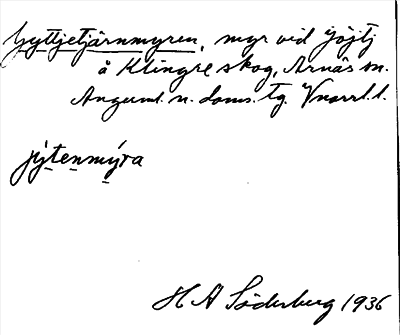 Gyttjetjärnmyren, myr vid Jöjtj
å Klingre skog, Arnäs sn.
Ångml. n. doms. tg. Vnorrl. l.
jýtenmýra
H Å Söderberg 1936